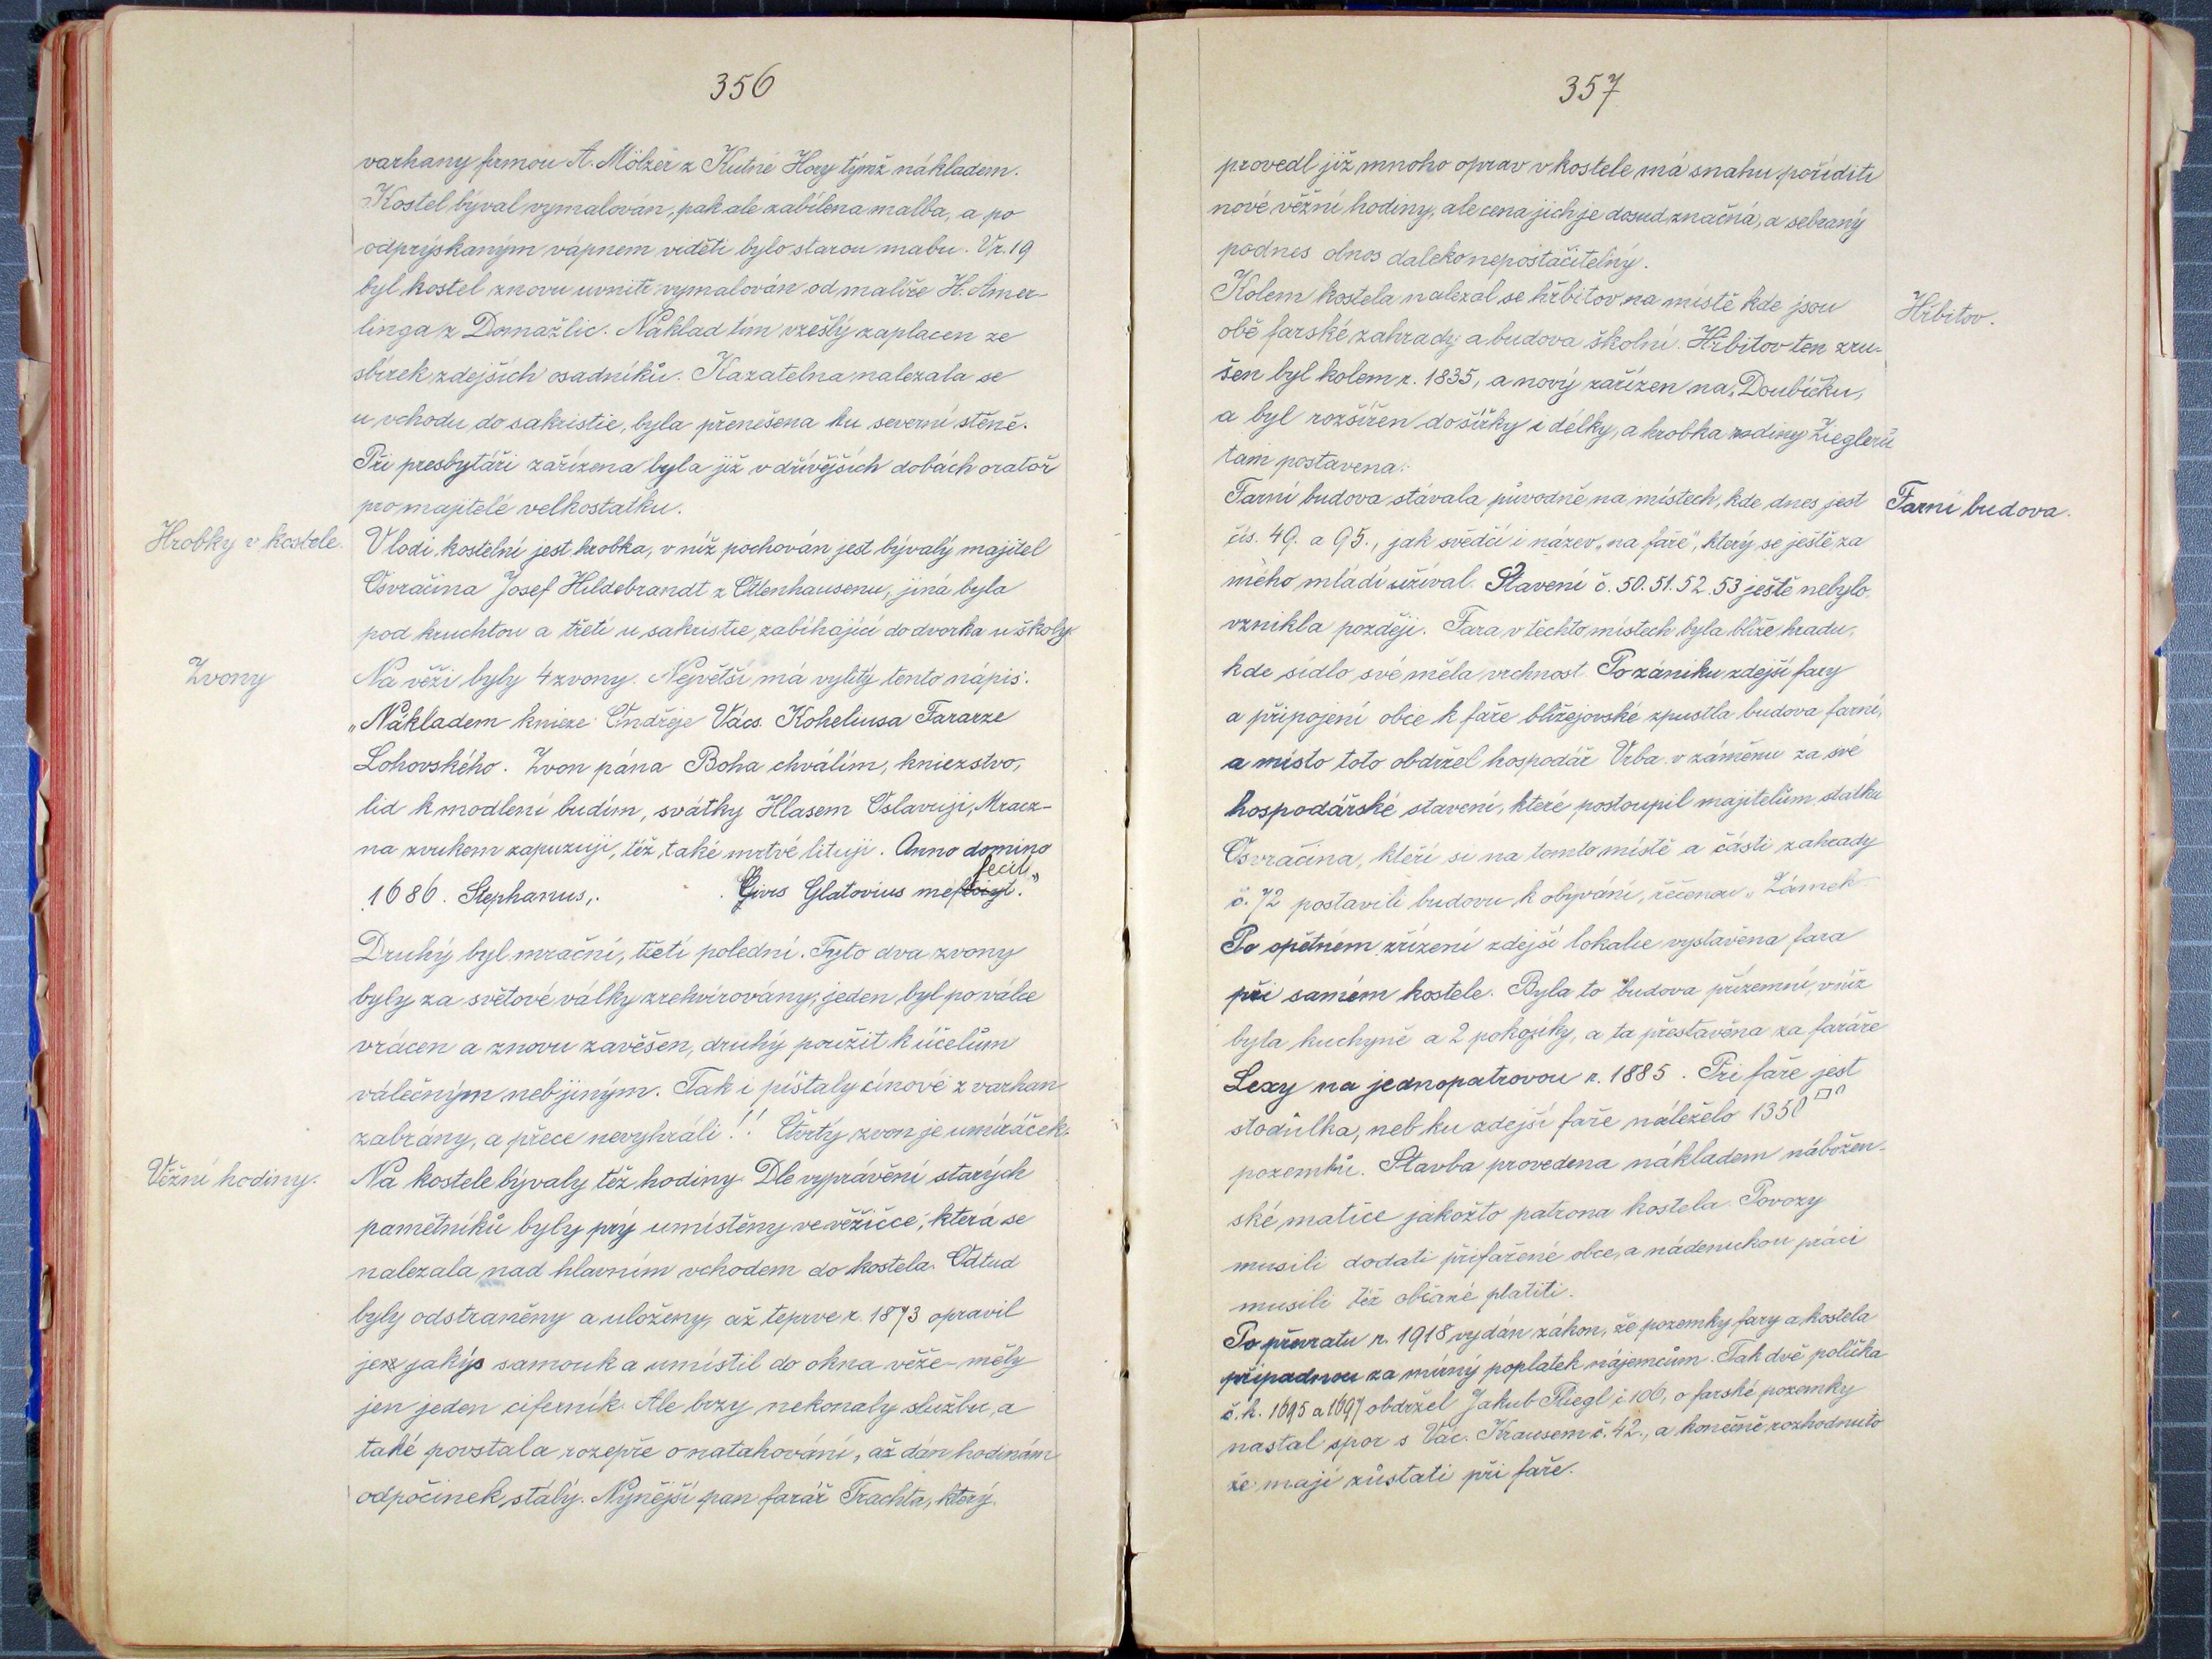 356
varhany firmou A. Mölzer z Kutné Hory týmž nákladem.
Kostel býval vymalován, pak ale zabílena malba, a po
odprýskaným vápnem viděti bylo starou mabu. Vr. 19
byl kostel znovu uvnitř vymalován od malíře H. Amer-
linga z Domažlic. Náklad tím vzešlý zaplacen ze
sbírek zdejších osadníků. Kazatelna nalezala se
u vchodu do sakristie, byla přenešena ku severní stěně.
Při presbytáři zařízena byla již v dřívějších dobách oratoř
pro majitelé velkostatku.
Hrobky v kostele.
V lodi kostelní jest hrobka, v níž pochován jest bývalý majitel
Osvračína Josef Hildebrandt z Ottenhausenu, jiná byla
pod kruchtou a třetí u sakristie, zabíhající do dvorka u školy
Zvony
Na věži byly 4 zvony. Největší má vylitý tento nápis:
„Nákladem knieze Ondřeje Vács. Koheliusa Fararze
Lohovského. Zvon pána Boha chválím, kniezstvo,
lid k modlení budím, svátky Hlasem Oslavuji, Mracz-
na zvukem zapuzuji, též také mrtvé lituji. Anno domino
1686. Stephanus,. Givis Glatovius me fecit."
Druhý byl mrační, třetí polední. Tyto dva zvony
byly za světové války zrekvírovány, jeden byl po válce
vrácen a znovu zavěšen, druhý použit k účelům
válečným neb jiným. Tak i píšťaly cínové z varhan
zabrány, a přece nevyhráli!! Čtvrtý zvon je umíráček.
Věžní hodiny.
Na kostele bývaly též hodiny. Dle vyprávění starých
pamětníků byly prý umístěny ve věžičce, která se
nalezala nad hlavním vchodem do kostela. Odtud
byly odstraněny a uloženy, až teprve r. 1873 opravil
jen jakýs samouk a umístil do okna věže - měly
jen jeden ciferník. Ale brzy nekonaly službu, a
také povstala rozepře o natahování, až dán hodinám
odpočinek stálý. Nynější pan farář Trachta, který
357
provedl již mnoho oprav v kostele má snahu poříditi
nové věžní hodiny, ale cena jich je dosud značná, a sebraný
podnes obnos daleko nepostačitelný.
Hřbitov.
Kolem kostela nalezal se hřbitov na místě kde jsou
obě farské zahrady a budova školní. Hřbitov ten zru-
šen byl kolem r. 1835, a nový zařízen na „Doubíčku,
a byl rozšířen do šířky i délky, a hrobka rodiny Zieglerů
tam postavena.
Farní budova.
Farní budova stávala původně na místech, kde dnes jest
čís. 49. a 95., jak svědčí i název „na faře", který se ještě za
mého mládí užíval. Stavení č. 50. 51. 52. 53 ještě nebylo,
vznikla později. Fara v těchto místech byla blíže hradu,
kde sídlo své měla vrchnost. Po zániku zdejší fary
a připojení obce k faře blížejovské zpustla budova farní,
a místo toto obdržel hospodář Vrba v záměnu za své
hospodářské stavení, které postoupil majitelům statku
Osvračína, kteří si na tomto místě a části zahrady
č. 72 postavili budovu k obývání, řečenou „Zámek
Po opětném zřízení zdejší lokalie vystavěna fara
při samém kostele. Byla to budova přízemní, v níž
byla kuchyně a 2 pokojíky, a ta přestavěna za faráře
Lexy na jednopatrovou r. 1885. Při faře jest
stodůlka, neb ku zdejší faře náleželo 1350 □°
pozemků. Stavba provedena nákladem nábožen-
ské matice jakožto patrona kostela. Povozy
musili dodati přifařené obce, a nádenickou práci
musili též občané platiti.
Po převratu r. 1918 vydán zákon, že pozemky fary a kostela
připadnou za mírný poplatek nájemcům. Tak dvě políčka
č. k. 1695 a 1697 obdržel Jakub Fliegl č. 106, o farské pozemky
nastal spor s Vác. Krausem č. 42., a konečně rozhodnuto
že mají zůstati při faře.